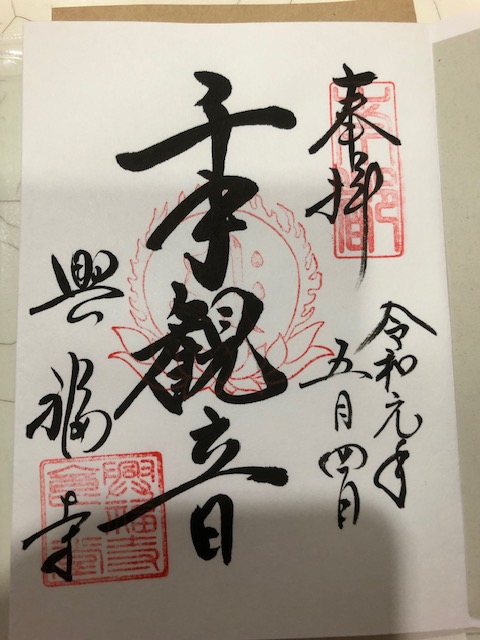 奉拝
令和元年
五月四日
千手観音
興福寺
興福寺
食堂